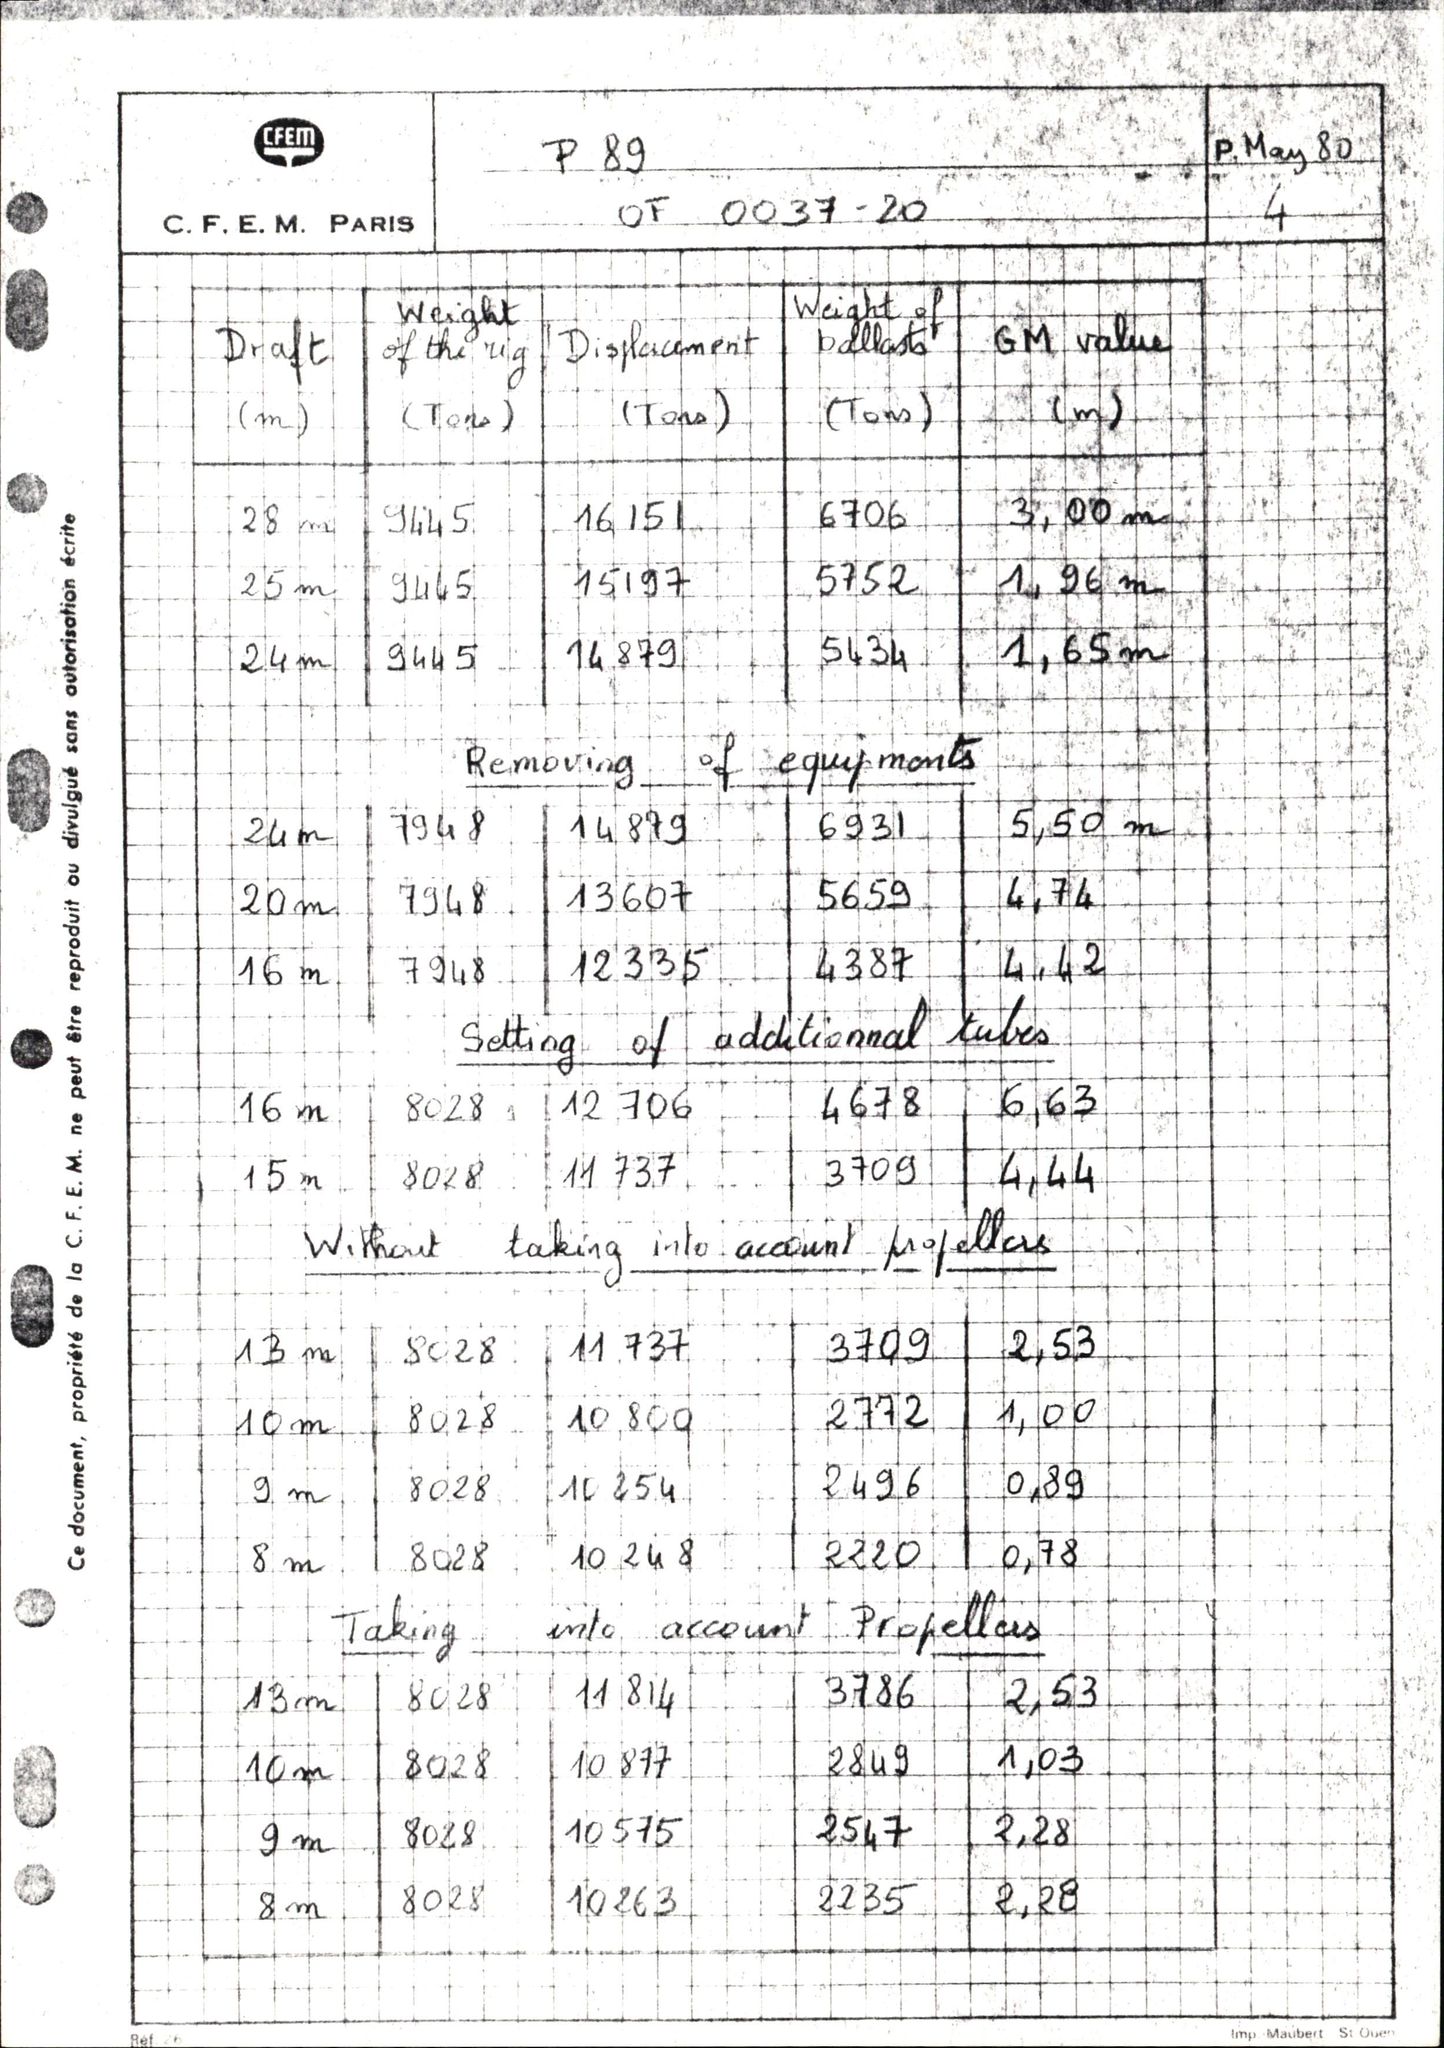 CFEM
C. F. E. M. PARIS
P 89
OF 0037-20
P. May 80
4
Draft (m) | Weight of the rig (Tons) | Displacement (Tons) | Weight of ballasts (Tons) | GM value (m)
28 m 9445 16151 6706 3,00 m
25 m 9445 15197 5752 1,96 m
24 m 9445 14879 5434 1,65 m
Removing of equipments
24 m 7948 14879 6931 5,50 m
20 m 7948 13607 5659 4,74
16 m 7948 12335 4387 4,42
Setting of additionnal tubes
16 m 8028 12706 4678 6,63
15 m 8028 11737 3709 4,44
Without taking into account propellers
13 m 8028 11737 3709 2,53
10 m 8028 10800 2772 1,00
9 m 8028 10254 2496 0,89
8 m 8028 10248 2220 0,78
Taking into account Propellers
13 m 8028 11814 3786 2,53
10 m 8028 10877 2849 1,03
9 m 8028 10575 2547 2,28
8 m 8028 10263 2235 2,28
Ce document, propriété de la C. F. E. M. ne peut être reproduit ou divulgué sans autorisation écrite
Réf. 26
Imp. Maubert St Ouen